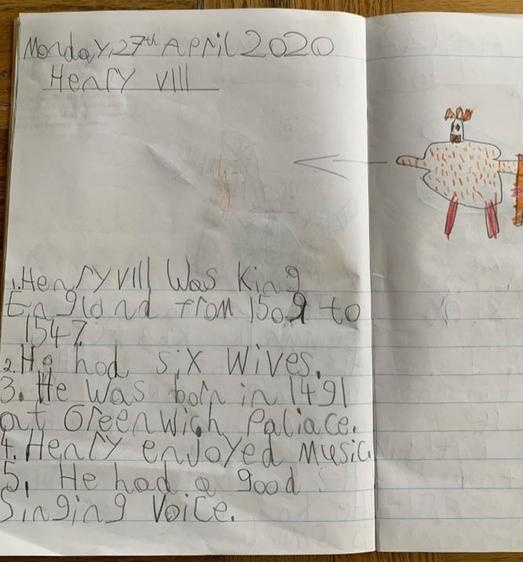 Monday, 27th April 2020
Henry VIII
1. Henry VIII was king
England from 1509 to
1547
2. He had six wives.
3. He was born in 1491
at Greenwich Paliace.
4. Henry enjoyed music
5. He had a good
singing voice.